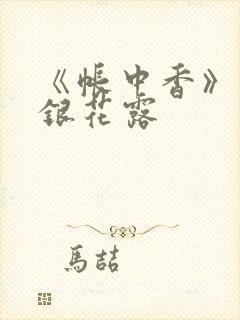 《帳中香》
銀花露
馬喆